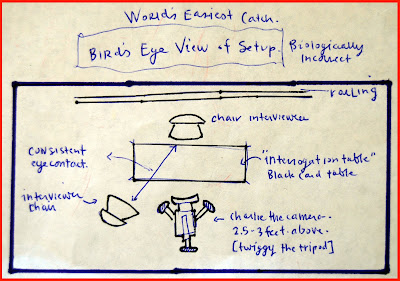 World's Easiest Catch.
Bird's Eye View of Setup.
Biologically
Incorrect
railing
chair interviewee
consistent
eye contact.
"interrogation table"
Black card table
interviewer
chair
charlie the camera.
2.5-3 feet above.
[twiggy the tripod]